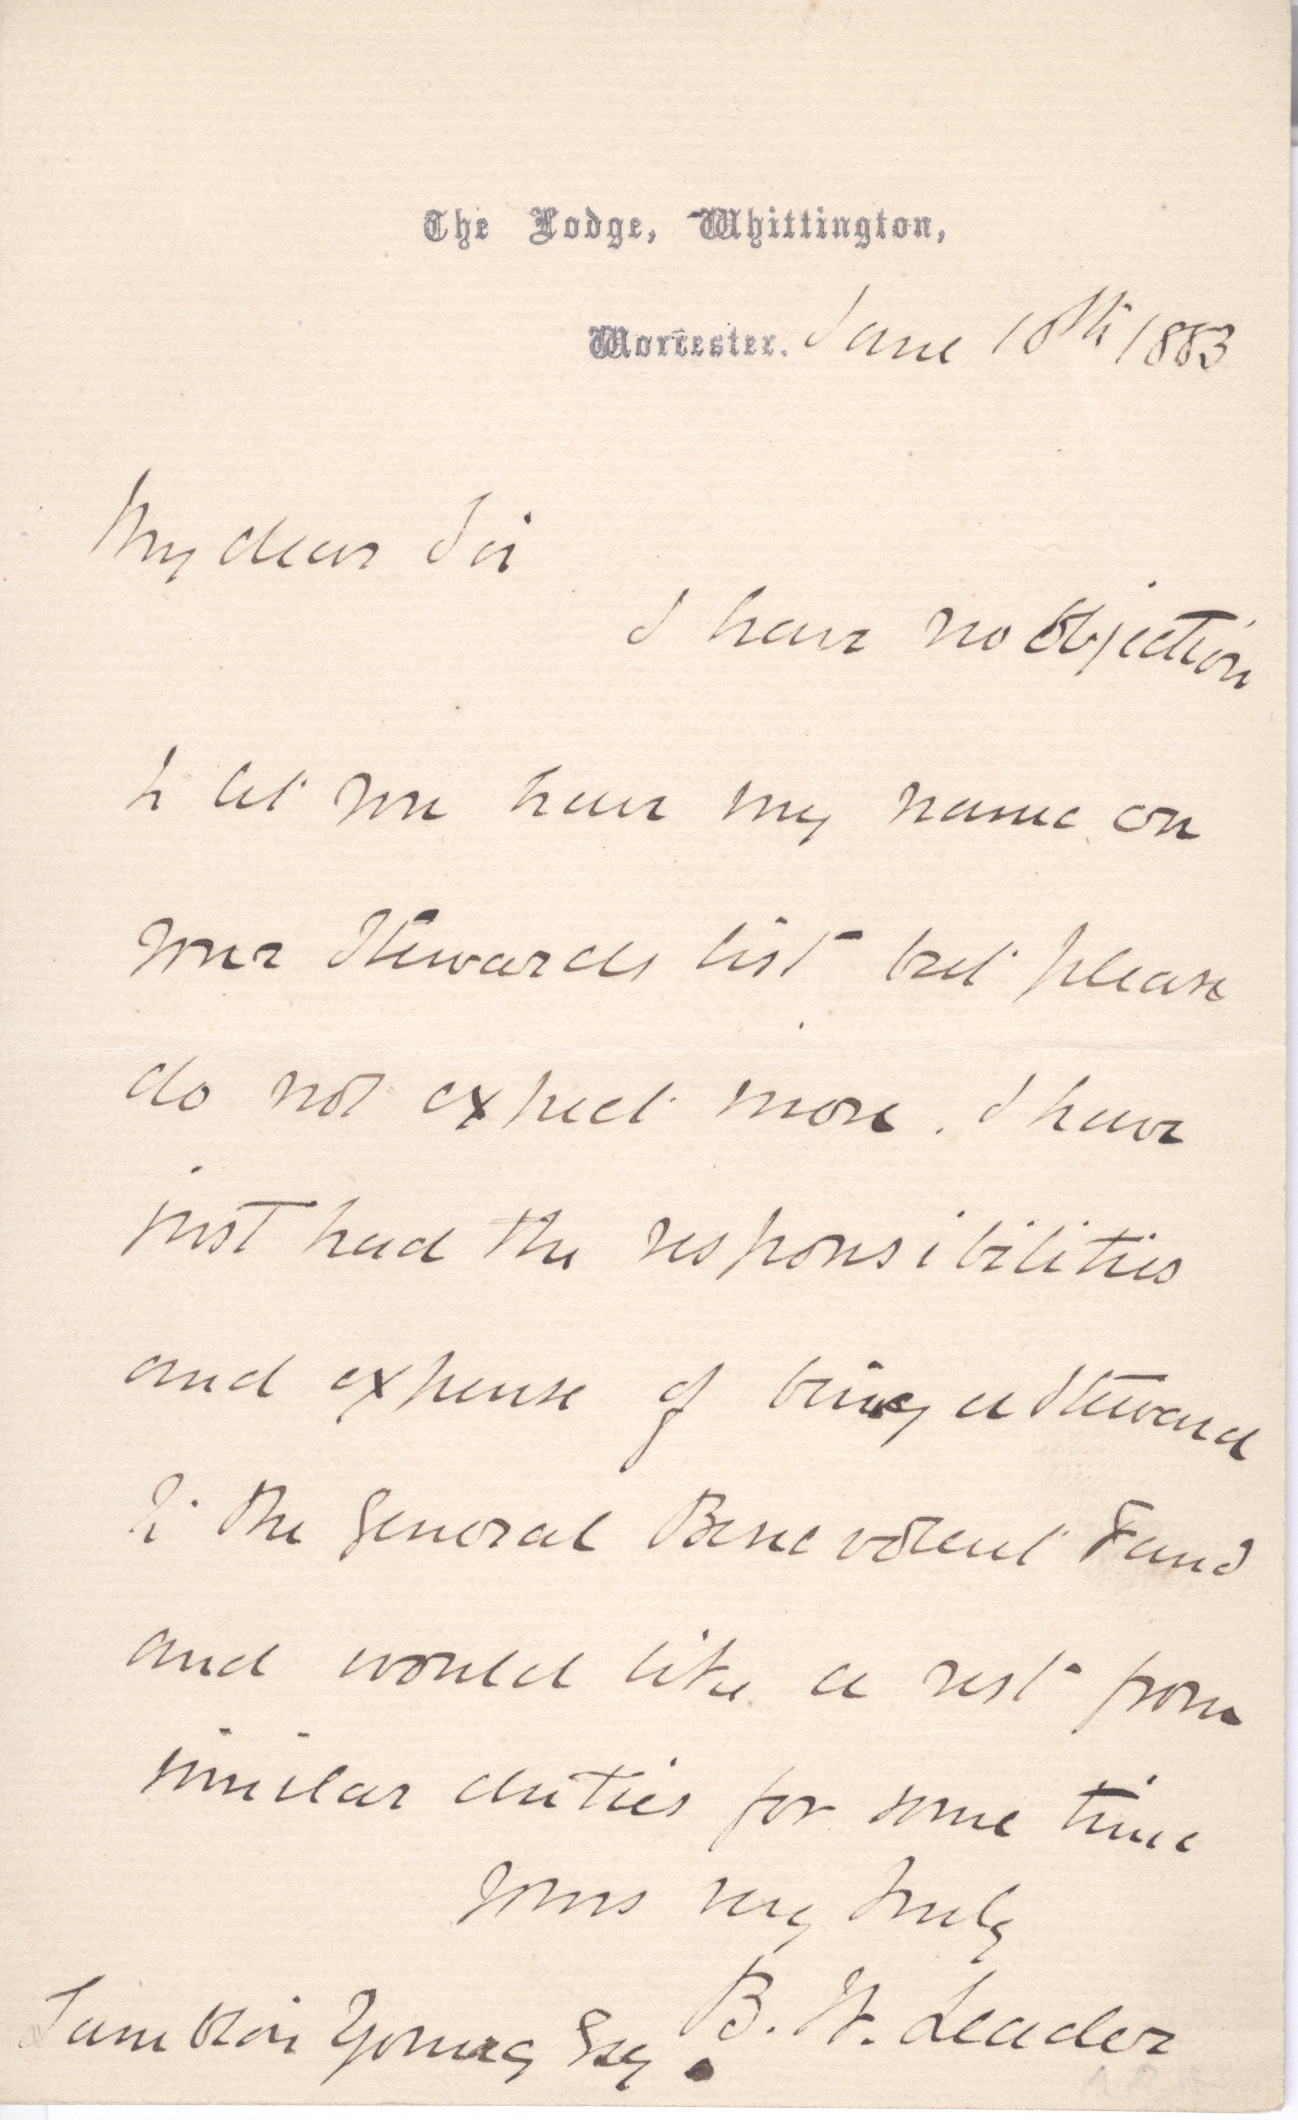 The Lodge, Whittington,
Worcester. June 18th 1883
My dear Sir
I have no objection
to let you have my name on
your Stewards list but please
do not expect more. I have
just had the responsibilities
and expense of being a Steward
to the General Benevolent Fund
and would like a rest from
similar duties for some time
Yours very truly
B. W. Leader
Young Esq